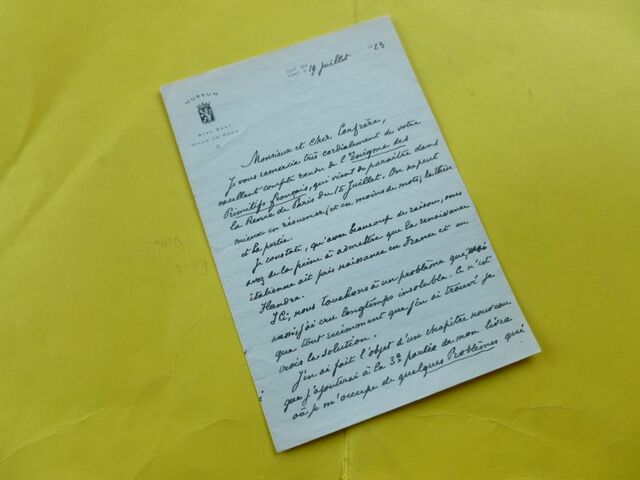 19 Juillet 1923
MUSEUM
STAD GENT
VILLE DE GAND
Monsieur et Cher Confrère,
Je vous remercie très cordialement de votre
excellent compte rendu de l'Enigme des
Primitifs français, qui vient de paraître dans
la Revue de Paris du 15 Juillet. On ne peut
mieux en résumer, (et en moins de mots), la thèse
et la portée.
Je constate, qu'avec beaucoup de raison, vous
avez de la peine à admettre que la renaissance
italienne ait pris naissance en France et en
Flandre.
Ici, nous touchons à un problème que, moi
aussi, j'ai cru longtemps insoluble. Ce n'est
que tout récemment que j'en ai trouvé je
crois la solution.
J'en ai fait l'objet d'un chapitre nouveau
que j'ajouterai à la 3e partie de mon livre
où je m'occupe de quelques Problèmes qui